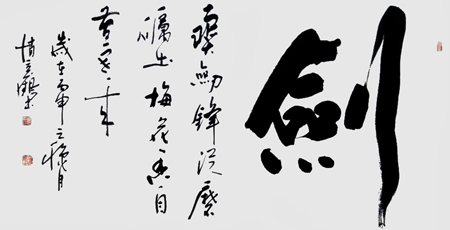 劍
寶劍鋒從磨
礪出梅花香自
苦寒來
歲在丙申之秋月